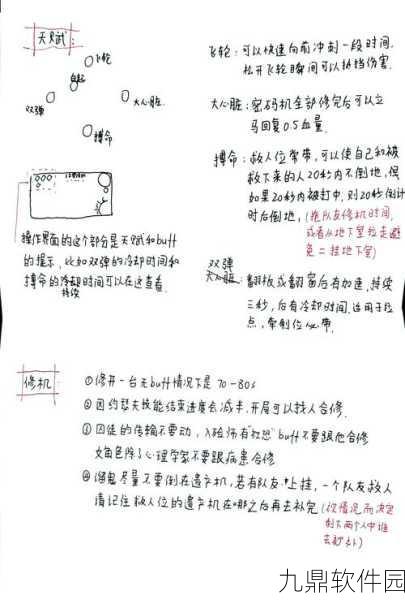 天赋:
飞轮
自起
双弹
大心脏
搏命
操作界面的这个部分是天赋和buff
的提示,比如双弹的冷却时间和
搏命的持续时间可以在这查看
飞轮:可以快速向前冲刺一段时间,
松开飞轮瞬间可以抵挡伤害.
大心脏:密码机全部修完后可以立
马回复0.5血量.
搏命:救人位常带,可以使自己和被
救下来的人20秒内不倒地,但
如果20秒内被打中,则20秒倒计
时后倒地,(拖队友修机时间,
或者从地下室拉走避
免二挂地下室)
双弹
大心脏:翻板或翻窗后有加速,持续
三秒,后有冷却时间.适用于拉
点,牵制位必带.
修机:
①修开一台无buff情况下是70-80s
②因约瑟夫技能结束进度会减半,开局可以找人合修.
③囚徒的传输不要动,入殓师有"救恐"buff不要跟他合修
女角色除了心理学家不要跟病患合修
④溜鬼尽量不要倒在遗产机,若有队友上挂,一个队友救人
请记住救人位的遗产机在哪之后再去补完(视情况而决定
剩下两个人中谁
去补)
九鼎软件园